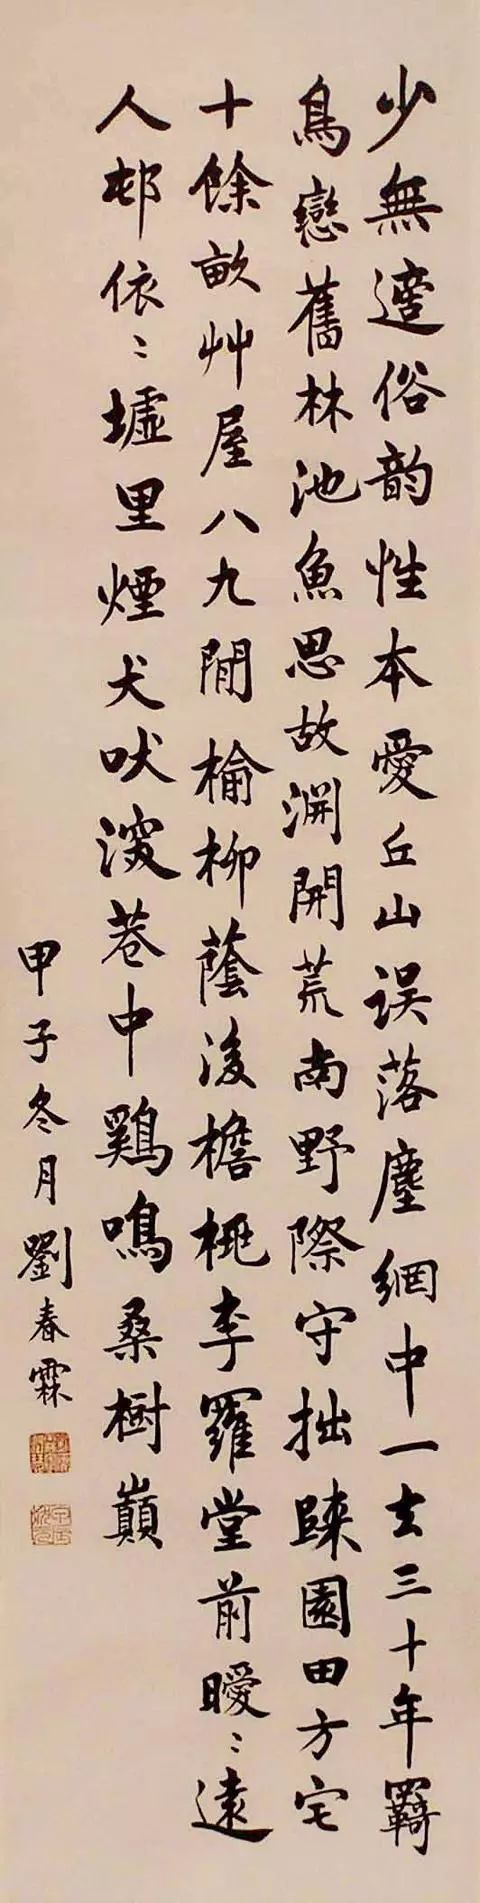 少無適俗韵性本愛丘山误落塵網中一去三十年羇
鳥戀舊林池魚思故淵開荒南野際守拙踈園田方宅
十餘畝艸屋八九間榆柳蔭後檐桃李羅堂前曖〻遠
人邨依〻墟里煙犬吠深巷中鷄鳴桑樹巔
甲子冬月劉春霖